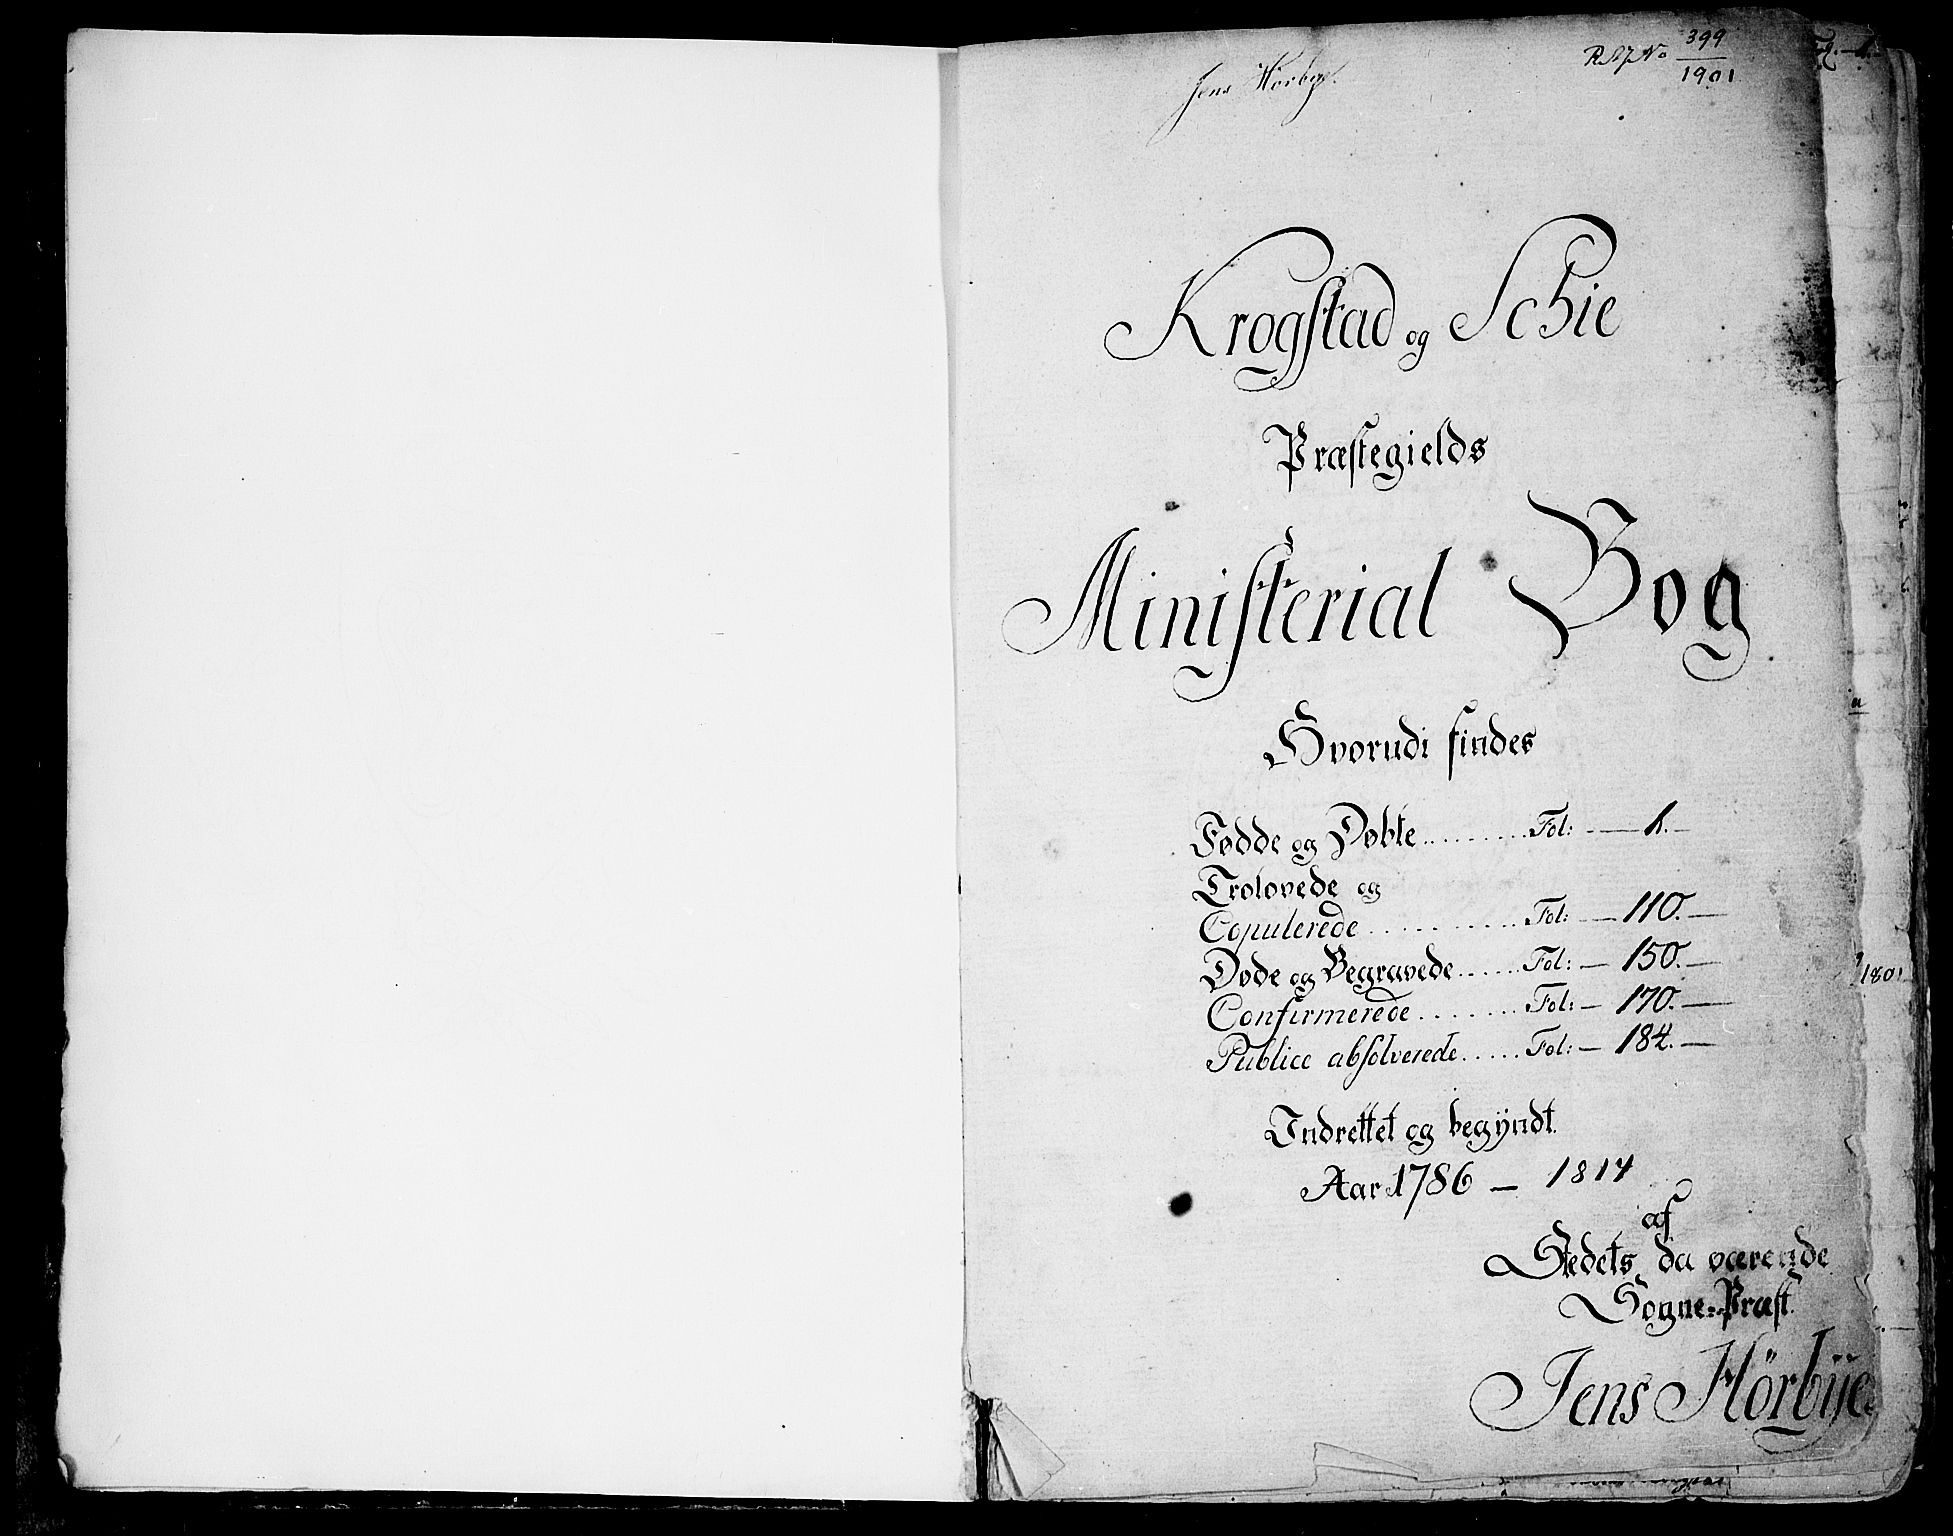 Jens Hørbye.
399
1901
Krogstad og Schie
Præstegields
Ministerial Bog
Hvorudi findes
Fødde og Døbte......... Fol: — 1. —
Trolovede og
Copulerede........... Fol: — 110. —
Døde og Begravede...... Fol: — 150. —
Confirmerede........ Fol: — 170. —
Publice absolverede..... Fol: — 184. —
Indrettet og begÿndt.
Aar 1786 — 1814
af
Stedets da værende
Sogne-Præst.
Jens Hörbÿe.
1801